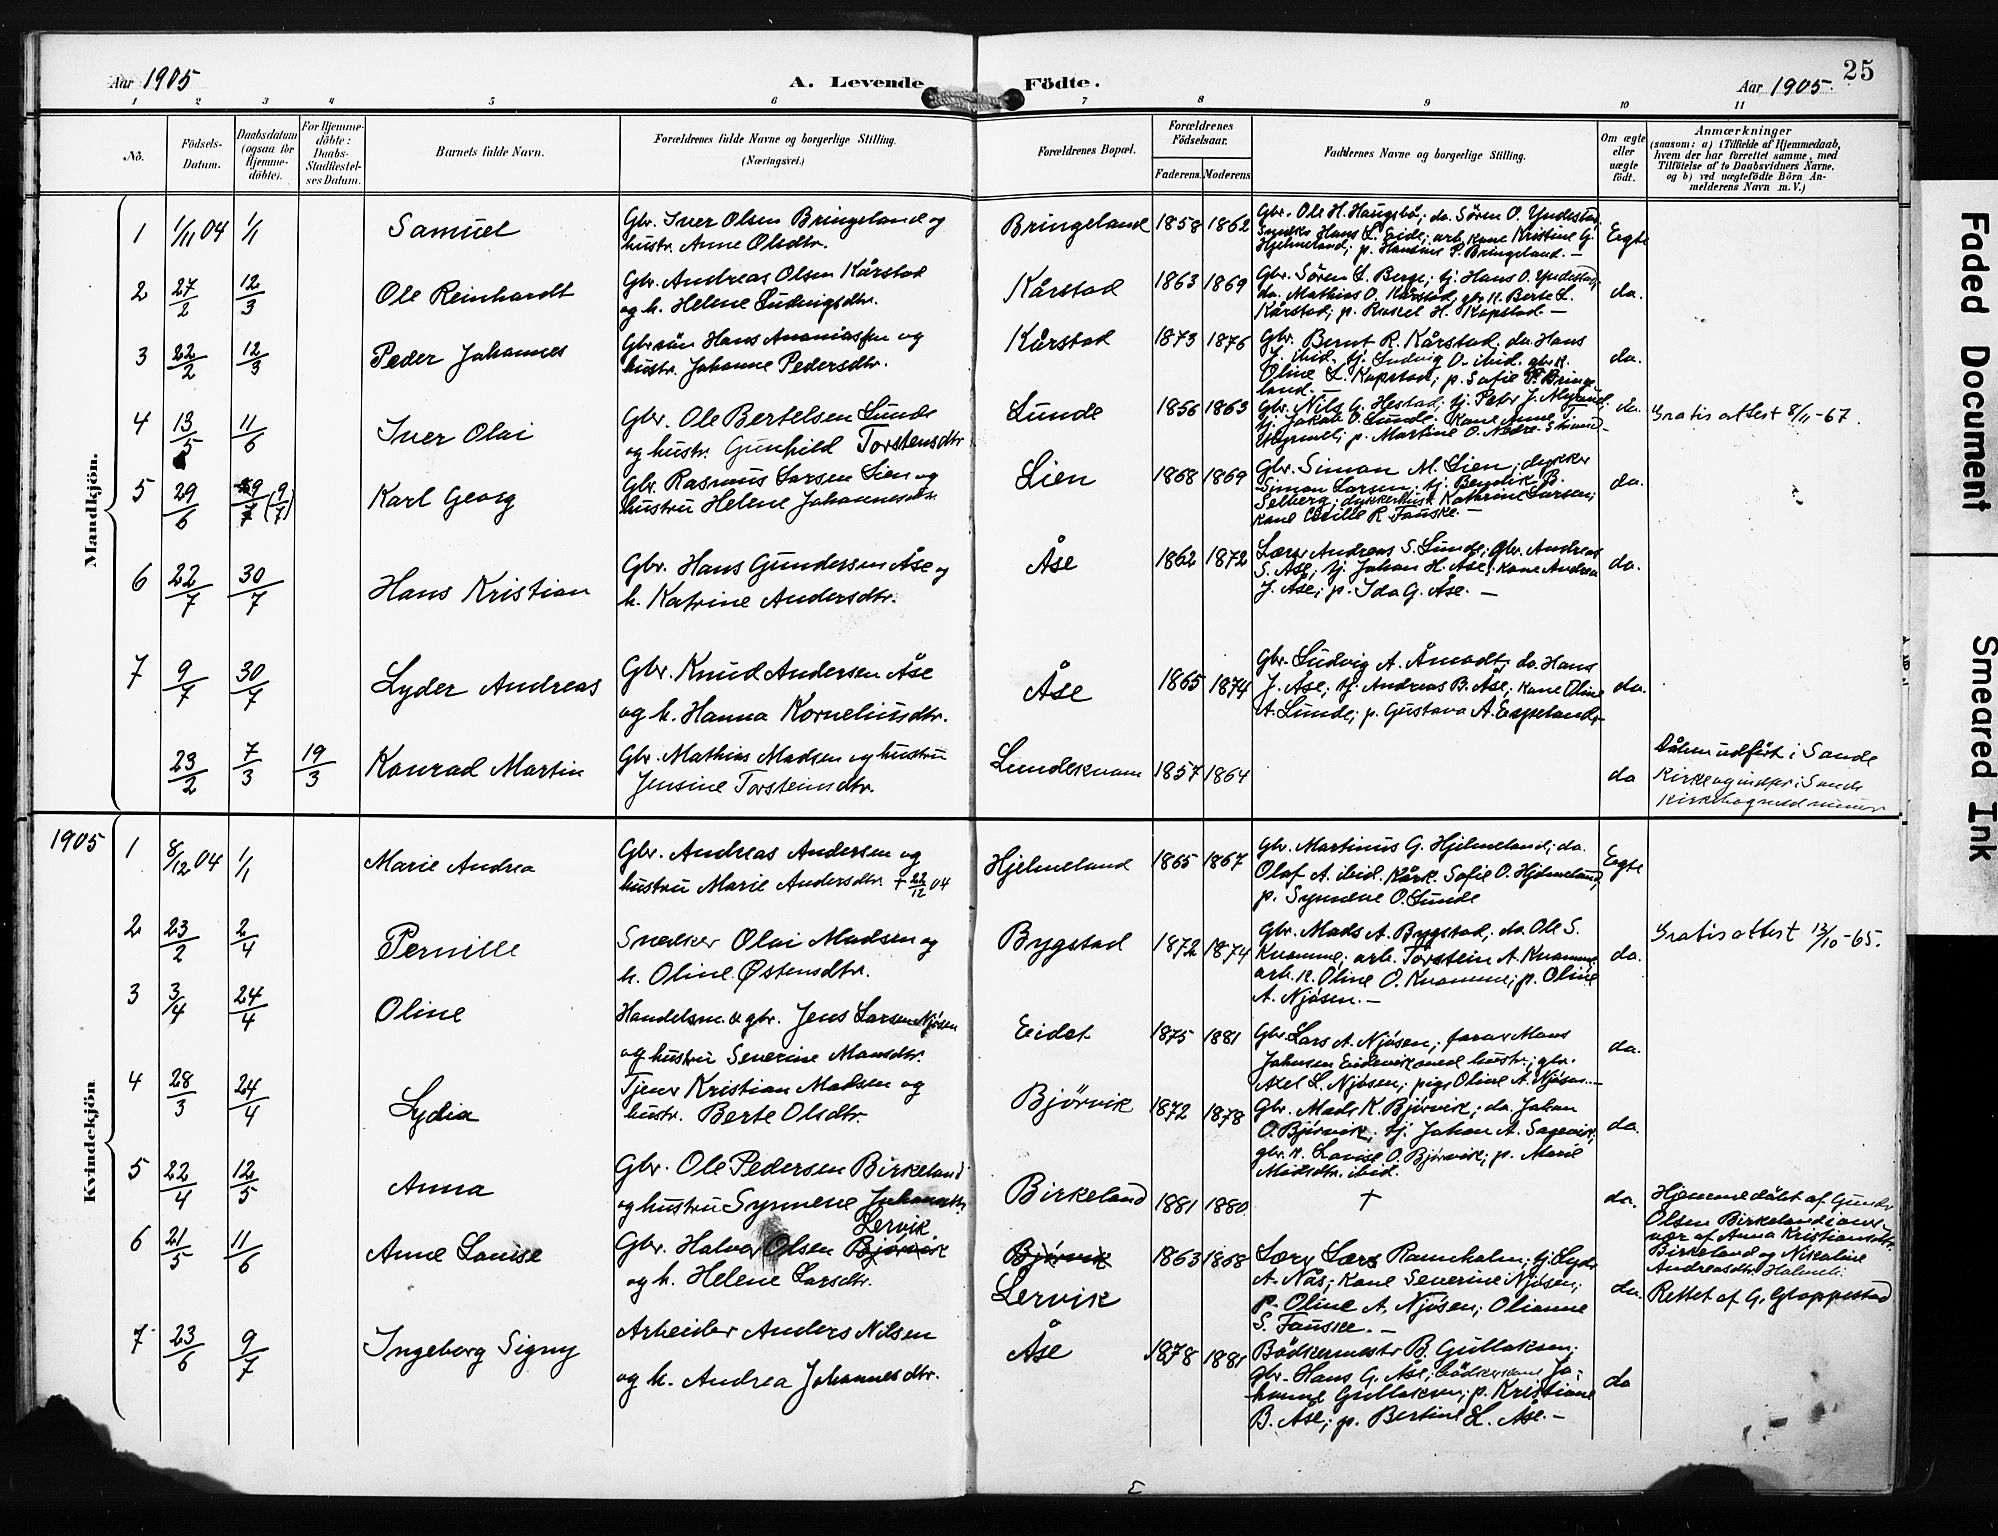 Aar 1905
A. Levende Födte.
Aar 1905.
25
1 2 3 4 5 6 7 8 9 10 11
No.
Födsels-Datum.
Daabsdatum (ogsaa for Hjemme-döbte).
For Hjemme-döbte: Daabs-Stadfæstel-ses Datum.
Barnets fulde Navn.
Forældrenes fulde Navne og borgerlige Stilling.
(Næringsvei.)
Forældrenes Bopæl.
Forældrenes Födselsaar.
Faderens. Moderens
Faddernes Navne og borgerlige Stilling.
Om ægte eller uægte født.
Anmærkninger
(saasom: a) i Tilfælde af Hjemmedaab,
hvem der har forrettet samme, med
Tilföielse af to Daabsvidners Navne,
og b) ved uægtefödte Börn An-
melderens Navn m. V.)
Mandkjön.
1 1/11 04 1/1 Samuel
Gbr. Iver Olsen Bringeland og
hustr. Anne Olsdtr.
Bringeland 1858 1862
Gbr. Ole H. Haugsbö; do. Sören O. Yndestad,
Hans L. Eide; arb. kone Kristine G.
Hjelmeland; p. Hansine P. Bringeland. —
Egte
2 27/2 12/3 Ole Reinhardt
Gbr. Andreas Olsen Kårstad
og h. Helene Ludvigsdtr.
Kårstad 1863 1869
Gbr. Sören L. Berge; tj. Hans O. Yndestad;
do. Mathias O. Kårstad, gbr. k. Berte L.
Kårstad; p. Rakel H. Kopstad —
do.
3 22/2 12/3 Peder Johannes
Gbrsön Hans Ananiassen og
hustr. Johanne Pedersdtr.
Kårstad 1873 1876
Gbr. Bernt R. Kårstad, do. Hans
J. ibid. tj. Ludvig O. ibid. gbr. k.
Oline L. Kopstad; p. Sofie P. Bringe
land. —
do.
4 13/5 11/6 Iver Olai
Gbr. Ole Bertelsen Lunde
og hustr. Gunhild Torstensdtr.
Lunde 1856 1863
Gbr. Nils G. Hestad; tj. Peter J.
tj. Jakob O. Lunde. Kone Anne
p. Martine O. Nedre-
do.
Gratis attest 8/11-67.
5 29/6 9/7 (9/7) Karl Georg
Gbr. Rasmus Larsen Lien og
hustru Helene Johannesdtr.
Lien 1868 1869
Gbr. Simon M. Lien; dykker
Simon Larsen; tj. Bendik B.
Selberg; dykkerhust. Kathrine Larsen;
kone Cecilie R. Fauske. —
do.
6 22/7 30/7 Hans Kristian
Gbr. Hans Gundersen Åse og
h. Katrine Andersdtr.
Åse 1862 1872
Lærer Andreas S. Lunde; gbr. Andreas
S. Åse; tj. Johan H. Åse; kone Andrea
J. Åse; p. Ida G. Åse. —
do.
7 9/7 30/7 Lyder Andreas
Gbr. Knud Andersen Åse
og h. Hanna Korneliusdtr.
Åse 1865 1874
Gbr. Ludvig A. Åmodt, do. Hans
J. Åse; tj. Andreas B. Åse; kone Oline
A. Lunde; p. Gustava A. Espeland.
do.
23/2 7/3 19/3 Konrad Martin
Gbr. Mathias Madsen og hustru
Jensine Torsteinsdtr.
Lundekvam 1857 1864
do
Dåben udfört i Sande
Kirke og indför i Sande
Kirkebog
Kvindekjön
1905
1 8/12 04 1/1 Marie Andrea
Gbr. Andreas Andersen og
hustru Marie Andersdtr. + 22/12 04
Hjelmeland 1865 1867
Gbr. Martinus G. Hjelmeland; do.
Olaf A. ibid. Kårk. Sofie O. Hjelmeland,
p. Synneve O. Lunde
Egte
2 23/2 2/4 Pernille
Snedker Olai Madsen og
h. Oline Østensdtr.
Bygstad 1872 1874
Gbr. Mads A. Bygstad, do. Ole S.
Kvamme; arb. Torstein A. Kvamme
arb. k. Oline O. Kvamme; p. Oline
A. Njösen. —
do.
Gratis attest 12/10-65.
3 3/4 24/4 Oline
Handelsm. & gbr. Jens Larsen Njösen
og hustru Severine Monsdtr.
Eidet 1875 1881
Gbr Lars A. Njösen; forar Mons
Johnsen Eidevik med hustr.; gbr.
Axel L. Njösen; pige Oline A. Njösen. —
do.
4 28/3 24/4 Lydia
Tjener Kristian Madsen og
hustr. Berte Olsdtr.
Bjørvik 1872 1878
Gbr. Mads K. Bjørvik; do. Johan
O. Bjørvik; tj. Johan A. Sagevik;
gbr. k. Lovise O. Bjørvik; p. Marie
Madsdtr. ibid.
do.
5 22/4 12/5 Anna
Gbr. Ole Pedersen Birkeland
og hustru Synneve
Birkeland 1881 1880
†
do.
Hjemmedöbt af Gunder
Olsen Birkeland i
nær af Anna Kristiansdtr.
Birkeland og Nikoline
Andreasdtr. Holmeli.
6 21/5 11/6 Anne Lovise
Lervik
Gbr. Halvor Olsen Bjørvik
og h. Helene Larsdtr.
Bjørvik
Lervik
1863 1868
Lærer Lars Ramholm; tj. Lyder
A. Nås; Kone Severine Njösen;
p. Oline A. Njösen; Olianne
S. Fauske. —
do.
Rettet af G. Gloppestad
7 23/6 9/7 Ingeborg Signy
Arbeider Anders Nilsen
og h. Andrea Johannesdtr.
Åse 1878 1881
Bödkermestr B. Gullaksen;
gbr. Hans G. Åse; bödkerkone Jo-
hanne Gullaksen; p. Kristiane
B. Åse; p. Bertine L. Åse. —
do
Faded Document
Smeared Ink